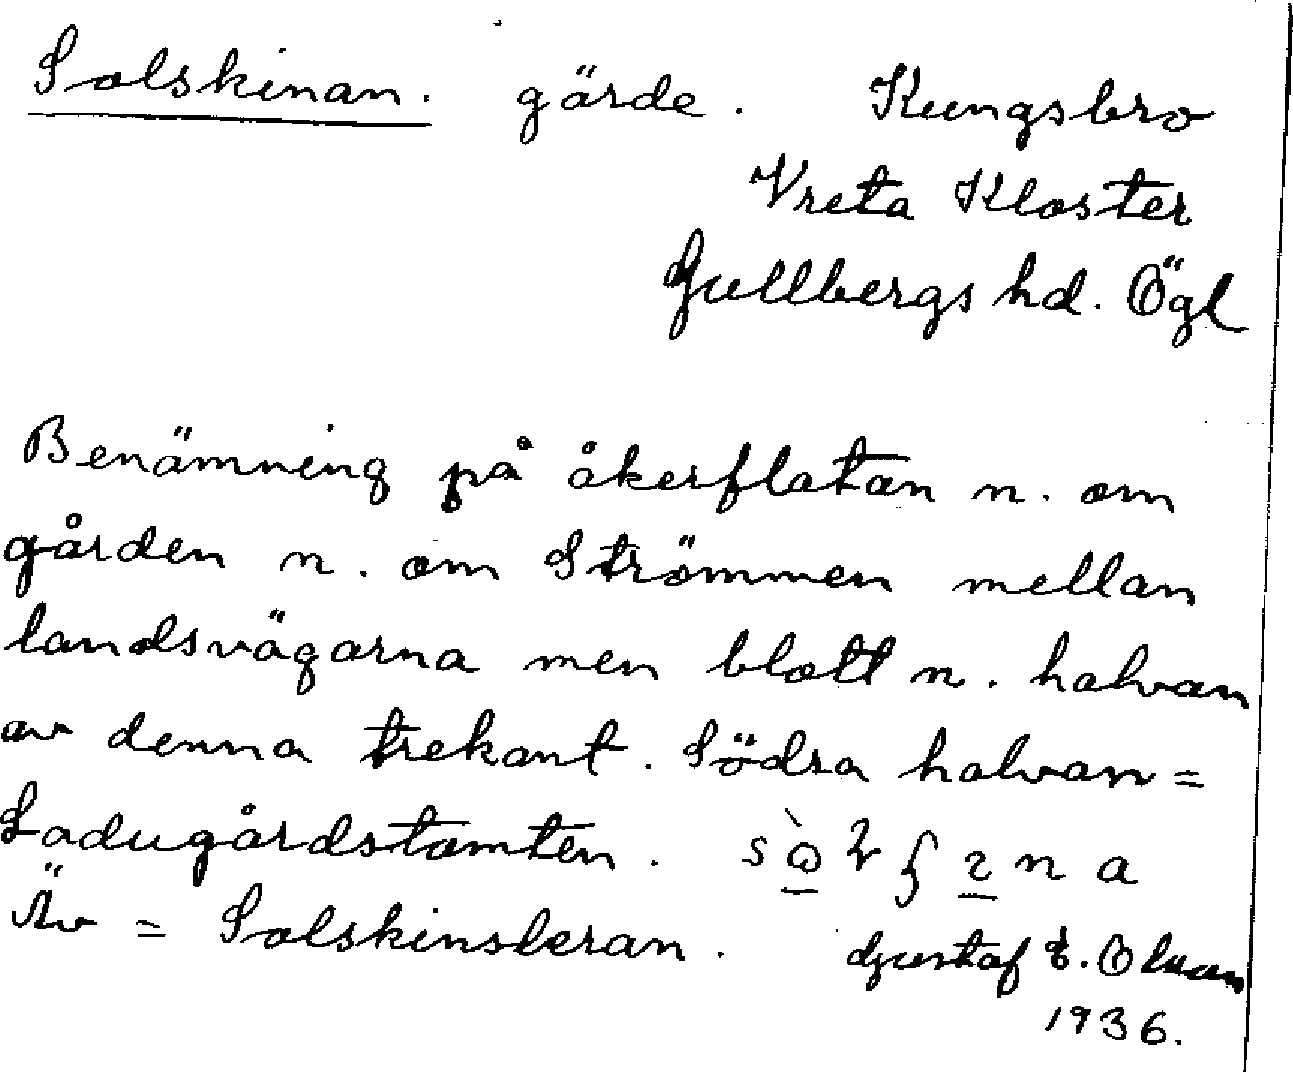 Solskinan. gärde. Kungsbro
Vreta Kloster
Gullbergs hd. Ögl
Benämning på åkerflatan n. om
gården n. om Strömmen mellan
landsvägarna men blott n. halvan
av denna trekant. Södra halvan =
Ladugårdstomten.
Äv = Solskinsleran. Gustaf E. Olsson
1936.